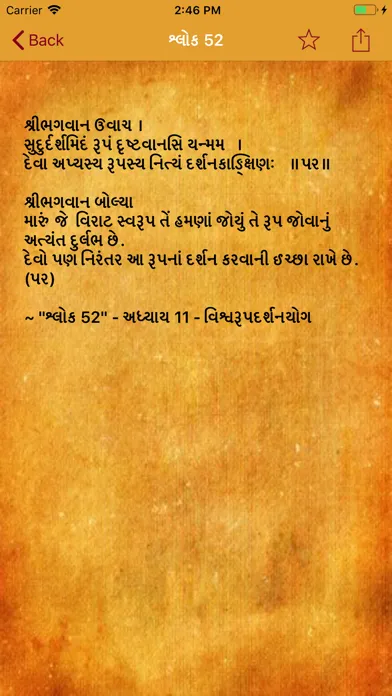 Carrier 2:46 PM
Back શ્લોક 52
શ્રીભગવાન ઉવાચ ।
સુદુર્દર્શમિદં રૂપં દૃષ્ટવાનસિ યન્મમ ।
દેવા અપ્યસ્ય રૂપસ્ય નિત્યં દર્શનકાઙ્ક્ષિણઃ ॥૫૨॥
શ્રીભગવાન બોલ્યા
મારું જે વિરાટ સ્વરૂપ તેં હમણાં જોયું તે રૂપ જોવાનું
અત્યંત દુર્લભ છે.
દેવો પણ નિરંતર આ રૂપનાં દર્શન કરવાની ઈચ્છા રાખે છે.
(૫૨)
~ "શ્લોક 52" - અધ્યાય 11 - વિશ્વરૂપદર્શનયોગ